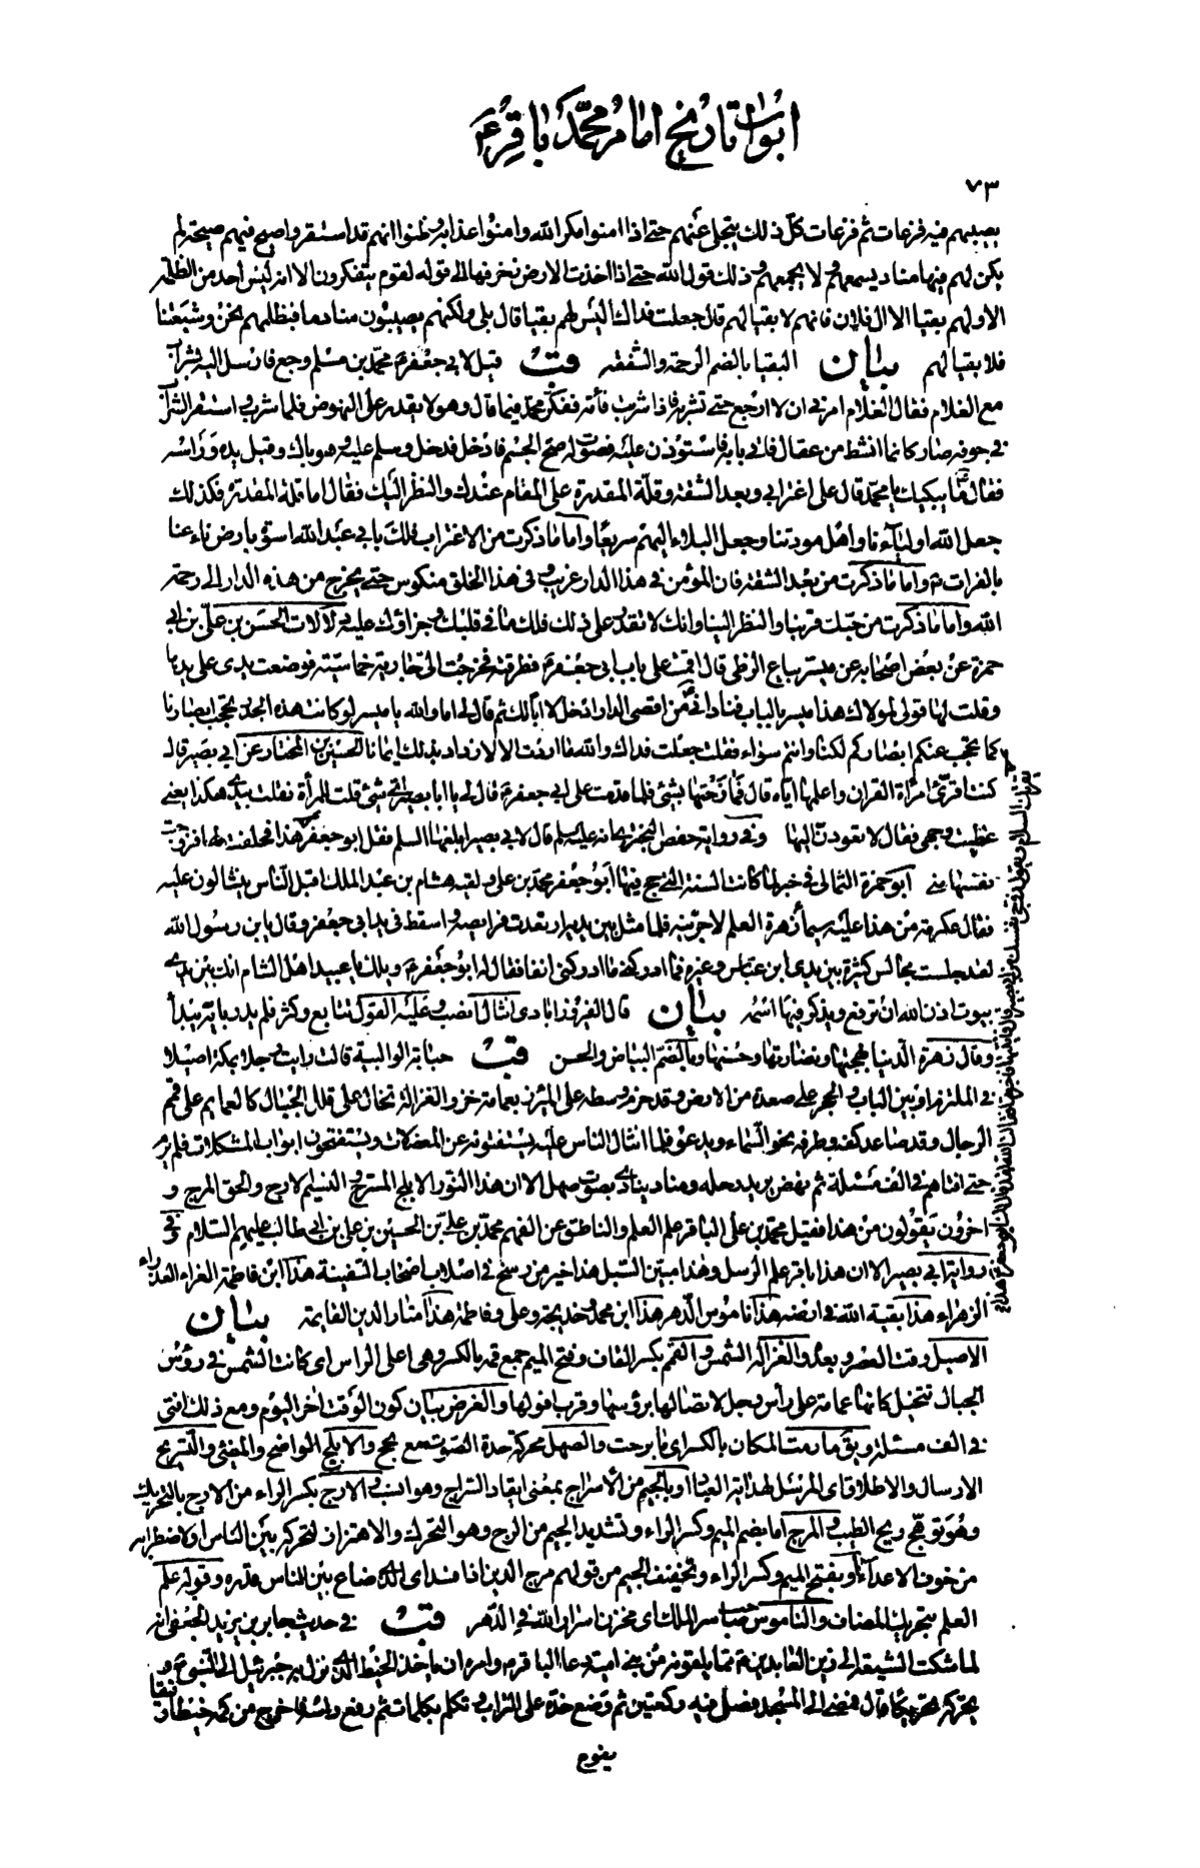 ابواب تاريخ امام محمّد باقر ع
٧٣
يصيبهم فيه فزعات ثم فزعات كلّ ذلك يتجلى عنهم حتى اذا امنوا مكر الله وامنوا عذابه وظنوا انهم قد استقروا صيح فيهم صيحة لم
يكن لهم فيها مناد يسمعهم ولا يجمعهم وذلك قول الله حتى اذا اخذت الارض زخرفها الى قوله لقوم يتفكرون الا انه ليس احد من الظلمة
الا ولهم بقيا الا ال فلان فانهم لا بقيا لهم قال جعلت فداك اليس لهم بقيا قال بلى ولكنهم يصيبون منا دما فبظلمهم نحن وشيعتنا
فلا بقيا لهم بيان البقيا بالضم الرحمة والشفقة قب قيل لابي جعفر ع محمّد بن مسلم وجع فارسل اليه بشراب
مع الغلام فقال الغلام امرني ان لا ارجع حتى تشربه فاذا شربت فأته ففكر محمد فيما قال وهو لا يقدر على النهوض فلما شرب واستقر الشراب
في جوفه صار كانما انشط من عقال فاتى بابه فاستؤذن عليه فصوت له صح الجسم فادخل فدخل وسلم عليه وهو باك وقبل يده وراسه
فقال ع ما يبكيك يا محمّد قال على اغترابي وبعد الشقة وقلة المقدرة على المقام عندك والنظر اليك فقال اما قلة المقدرة فكذلك
جعل الله اولياءنا واهل مودتنا وجعل البلاء اليهم سريعا واما ما ذكرت من الاغتراب فلك بابي عبد الله اسوة بارض ناء عنا
بالفرات ص واما ما ذكرت من بعد الشقة فان المؤمن في هذا الدار غريب وفي هذا الخلق منكوس حتى يخرج من هذه الدار الى رحمة
الله واما ما ذكرت من حبك قربنا والنظر الينا وانك لا تقدر على ذلك فلك ما في قلبك وجزاؤك عليه دلالات الحسن بن علي بن ابي
حمزة عن بعض اصحابه عن ميسر بياع الزطى قال اقمت على باب ابي جعفر ع فطرقته فخرجت الي جارية خماسية فوضعت يدى على يدها
وقلت لها قولي لمولاك هذا ميسر بالباب فناداني ع من اقصى الدار ادخل لا ابا لك ثم قال لي اما والله يا ميسر لو كانت هذه الجدر تحجب ابصارنا
كما تحجب عنكم ابصاركم لكنا وانتم سواء فقلت جعلت فداك والله ما اردت الا لازداد بذلك ايمانا الحسين بن المختار عن ابي بصير قال
كنت اقرئ امراة القران واعلمها اياه قال فمازحتها بشئ فلما قدمت على ابي جعفر ع قال لي يا ابا بصير اي شئ قلت للمرأة فقلت بيدى هكذا يعني
غطيت وجهي فقال لا تعودن اليها وفي رواية حفص البخترى انه عليه السلم قال لابي بصير ابلغها السلم فقل ابو جعفر
نفسها مني ابو حمزة الثمالي في خبر لما كانت السنة التي حج فيها ابو جعفر محمد بن علي ولقيه هشام بن عبد الملك اقبل الناس ينثالون عليه
فقال عكرمة من هذا عليه سيماء زهرة العلم لاجربنه فلما مثل بين يديه ارتعدت فرايصه واسقط في يد ابي جعفر وقال يابن رسول الله
لقد جلست مجالس كثيرة بين يدى ابن عباس وغيره فما ادركني ما ادركني انفا فقال له ابو جعفر ع ويلك يا عبيد اهل الشام انك بين يدى
بيوت اذن الله ان ترفع ويذكر فيها اسمه بيان قال الفيروزابادى انثال انصب وعليه القول تتابع وكثر فلم يدر بايه يبدأ
وقال زهرة الدنيا بهجتها ونضارتها وحسنها وبالضم البياض والحسن قب حبابة الوالبية قالت رايت رجلا بمكة اصيلا
في الملتزم او بين الباب والحجر على صعدة من الارض وقد حزم وسطه على المئزر بعمامة خز والغزالة تخال على قلل الجبال كالعمايم على قمم
الرجال وقد صاعد كفه وطرفه نحو السماء ويدعو فلما انثال الناس عليه يستفتونه عن المعضلات ويستفتحون ابواب المشكلات فلم يرم
حتى افتاهم في الف مسئلة ثم نهض يريد رحله ومناد ينادى بصوت صهل الا ان هذا النور الابلج المسرج والنسيم الارج والحق المرج و
اخرون يقولون من هذا فقيل محمّد بن علي الباقر علم العلم والناطق عن الفهم محمّد بن علي بن الحسين بن علي بن ابي طالب عليهم السلام وفي
رواية ابي بصير الا ان هذا باقر علم الرسل وهذا مبين السبل هذا خير من رسخ في اصلاب اصحاب السفينة هذا ابن فاطمة الغراء العذراء
الزهراء هذا بقية الله في ارضه هذا ناموس الدهر هذا ابن محمد وخديجة وعلي وفاطمة هذا منار الدين القايمة بيان
الاصيل وقت العصر وبعده والغزالة الشمس والقمم بكسر القاف وفتح الميم جمع قمة بالكسر وهي اعلى الراس اى كانت الشمس في رؤس
الجبال تتخيل كانها عمامة على رأس رجل لاتصالها برؤسها وقرب افولها والغرض بيان كون الوقت اخر اليوم ومع ذلك افتى
في الف مسئلة ويق ما رمت المكان بالكسر اى ما برحت والصهل محركة حدة الصوت مع بحح والابلج الواضح والمضئ والتسريح
الارسال والاطلاق اى المرسل لهداية العباد او بالجيم من الاسراج بمعنى ايقاد السراج وهو انسب والارج بكسر الراء من الارج بالتحريك
وهو توهج ريح الطيب والمرج اما بضم الميم وكسر الراء وتشديد الجيم من الرج وهو التحرك والاهتزاز لتحركه بين الناس او لاضطرابه
من خوف الاعداء او بفتح الميم وكسر الراء وتخفيف الجيم من قولهم مرج الدين اذا فسد اى الذى ضاع بين الناس قدره وقوله علم
العلم بتحريك المضاف والناموس صاحب سر الملك اى مخزن اسرار الله في الدهر قب في حديث جابر بن يزيد الجعفى انه
لما شكت الشيعة الى زين العابدين ع مما يلقونه من بني امية دعا الباقر ع وامره ان ياخذ الخيط الذى نزل به جبرئيل الى النبي ص و
يحركه تحريكا قال فمضى الى المسجد فصلى فيه ركعتين ثم وضع خده على التراب وتكلم بكلمات ثم رفع راسه فاخرج من كمه خيطا دقيقا
يفوح